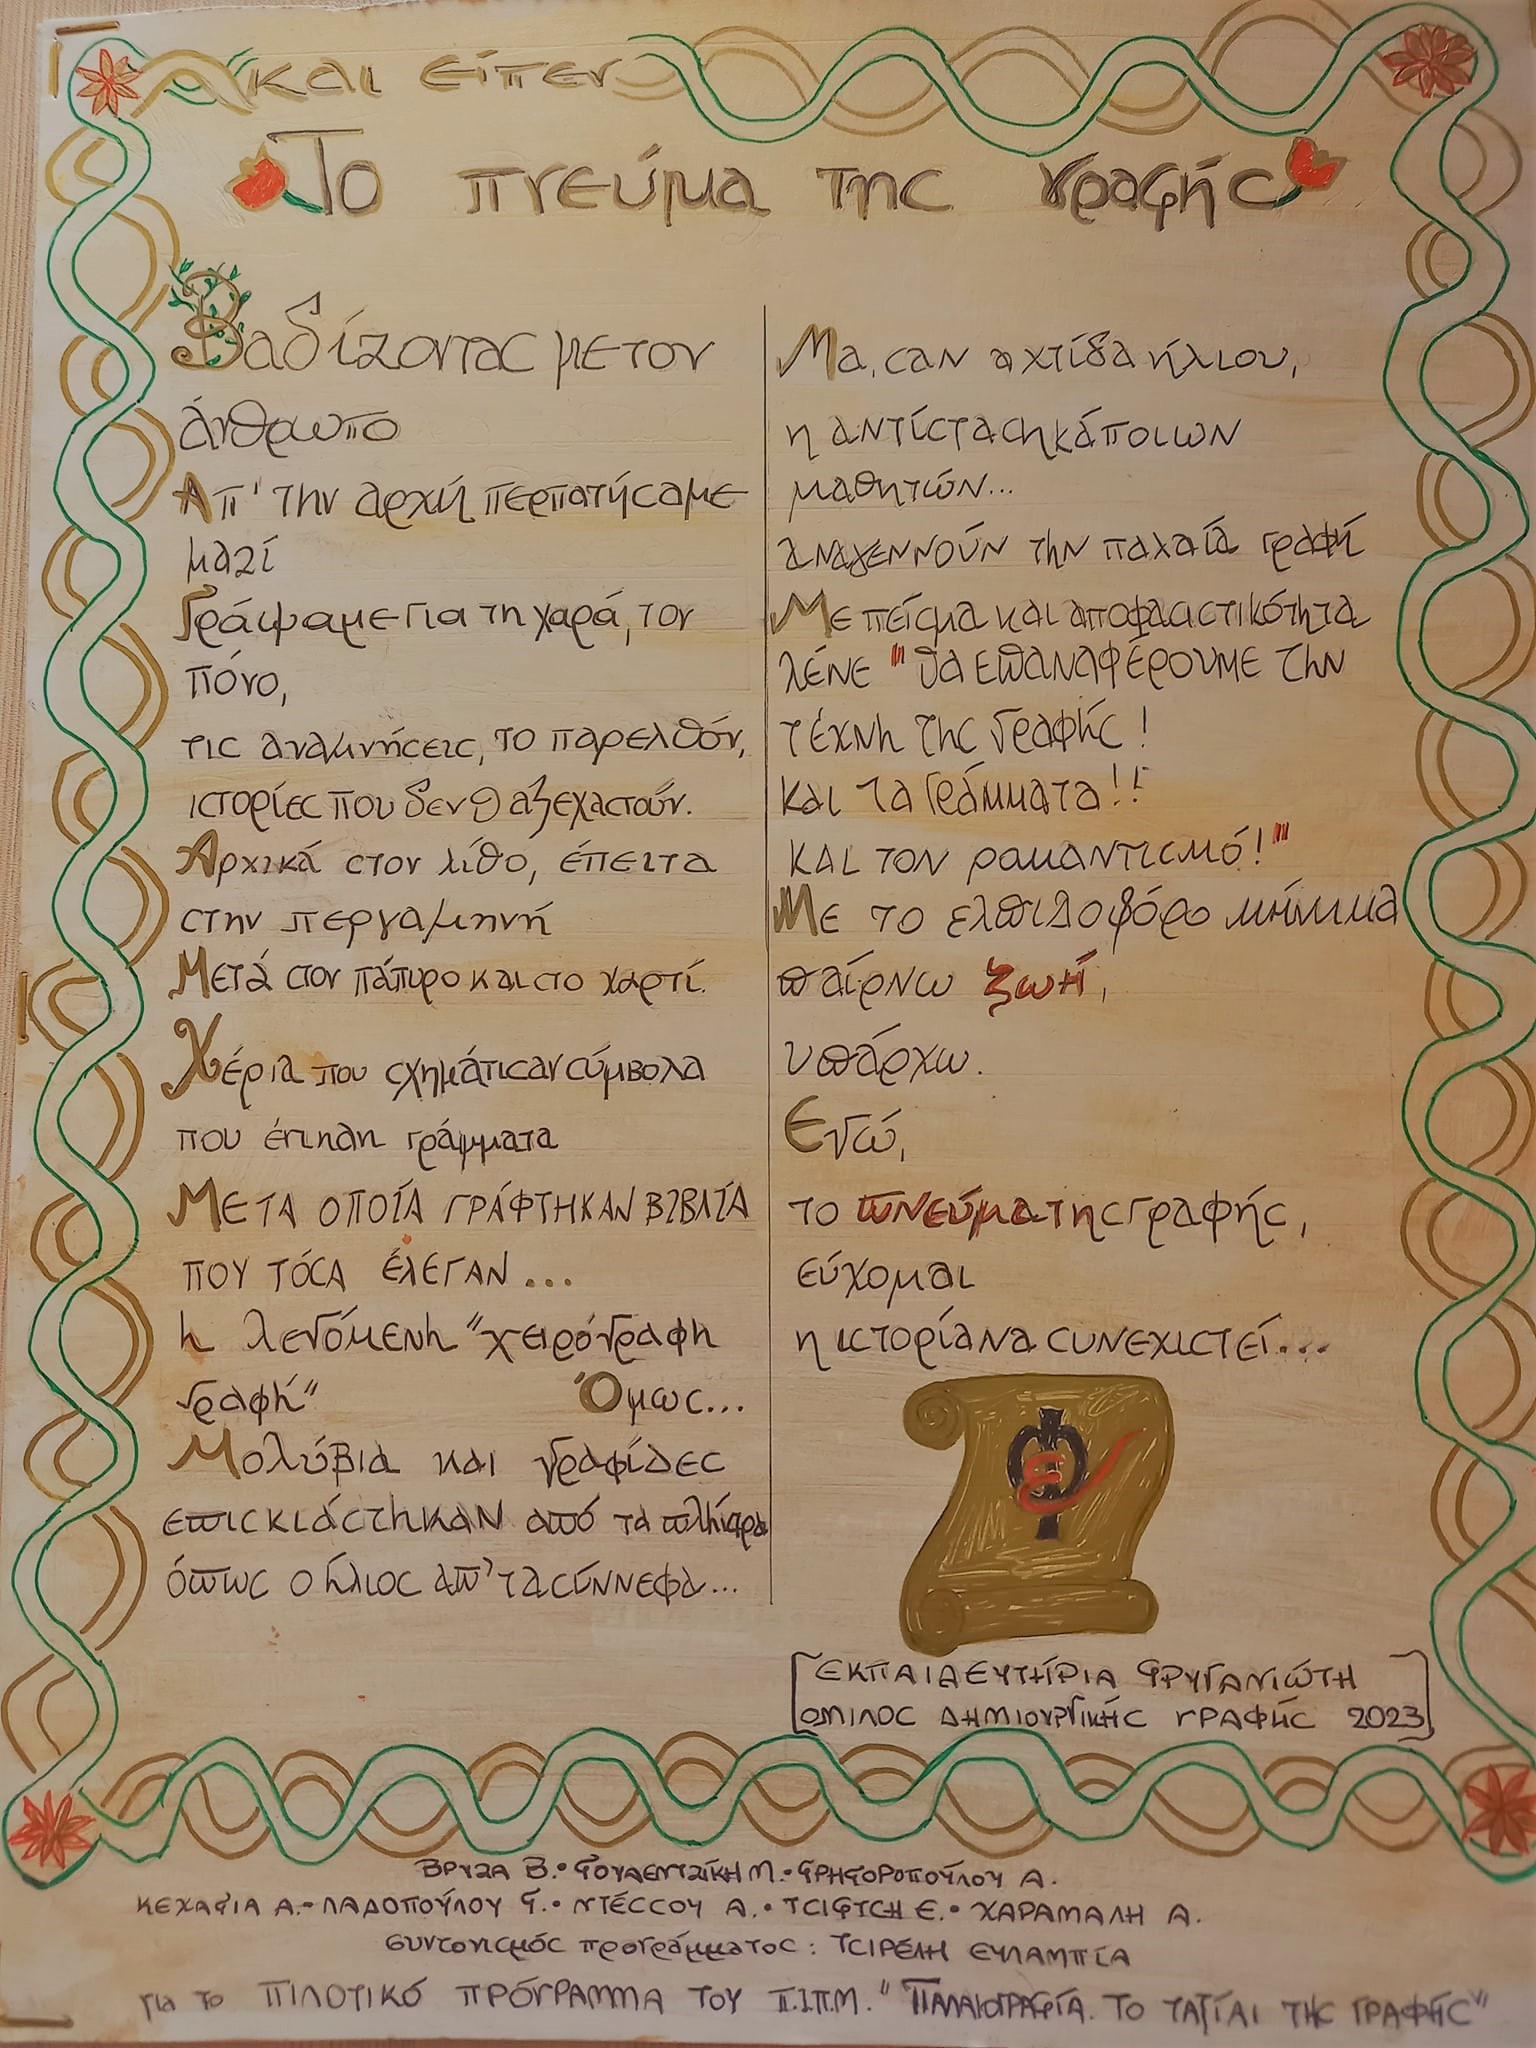 και είπεν
Το πνεύμα της γραφής
Βαδίζοντας με τον
άνθρωπο
Απ' την αρχή περπατήσαμε
μαζί
Γράψαμε για τη χαρά, τον
πόνο,
τις αναμνήσεις, το παρελθόν,
ιστορίες που δεν θα ξεχαστούν.
Αρχικά στον λίθο, έπειτα
στην περγαμηνή
Μετά στον πάπυρο και στο χαρτί.
Χέρια που σχημάτισαν σύμβολα
που έπειτα γράμματα
ΜΕ ΤΑ ΟΠΟΊΑ ΓΡΆΦΤΗΚΑΝ ΒΙΒΛΊΑ
ΠΟΥ ΤΌΣΑ ΈΛΕΓΑΝ...
η λεγόμενη "χειρόγραφη
γραφή" Όμως...
Μολύβια και γραφίδες
επισκιάστηκαν από τα πλήκτρα
όπως ο ήλιος απ' τα σύννεφα...
Μα, σαν αχτίδα ήλιου,
η αντίσταση κάποιων
μαθητών...
αναγεννούν την παλαιά γραφή
Με πείσμα και αποφασιστικότητα
λένε "θα επαναφέρουμε την
τέχνη της γραφής!
και τα γράμματα!!
και τον ρομαντισμό!"
Με το ελπιδοφόρο μήνυμα
παίρνω ζωή,
υπάρχω.
Εγώ,
το πνεύμα της γραφής,
εύχομαι
η ιστορία να συνεχιστεί...
ΕΚΠΑΙΔΕΥΤΉΡΙΑ ΦΡΥΓΑΝΙΏΤΗ
ΟΜΙΛΟΣ ΔΗΜΙΟΥΡΓΙΚΉΣ ΓΡΑΦΉΣ 2023
ΒΡΥΖΑ Β. • ΓΟΥΛΕΝΤΖΊΚΗ Μ. • ΓΡΗΓΟΡΟΠΟΎΛΟΥ Α.
ΚΕΧΑΓΙΑ Α. • ΛΑΔΟΠΟΎΛΟΥ Γ. • ΝΤΈΣΣΟΥ Α. • ΤΣΙΦΤΣΗ Ε. • ΧΑΡΑΜΑΛΗ Α.
συντονισμός προγράμματος: ΤΣΙΡΈΛΗ ΕΥΛΑΜΠΊΑ
για το ΠΙΛΟΤΙΚΌ ΠΡΌΓΡΑΜΜΑ ΤΟΥ Π.Ι.Π.Μ. "ΠΑΛΑΙΟΓΡΑΦΊΑ. ΤΟ ΤΑΞΊΔΙ ΤΗΣ ΓΡΑΦΉΣ"